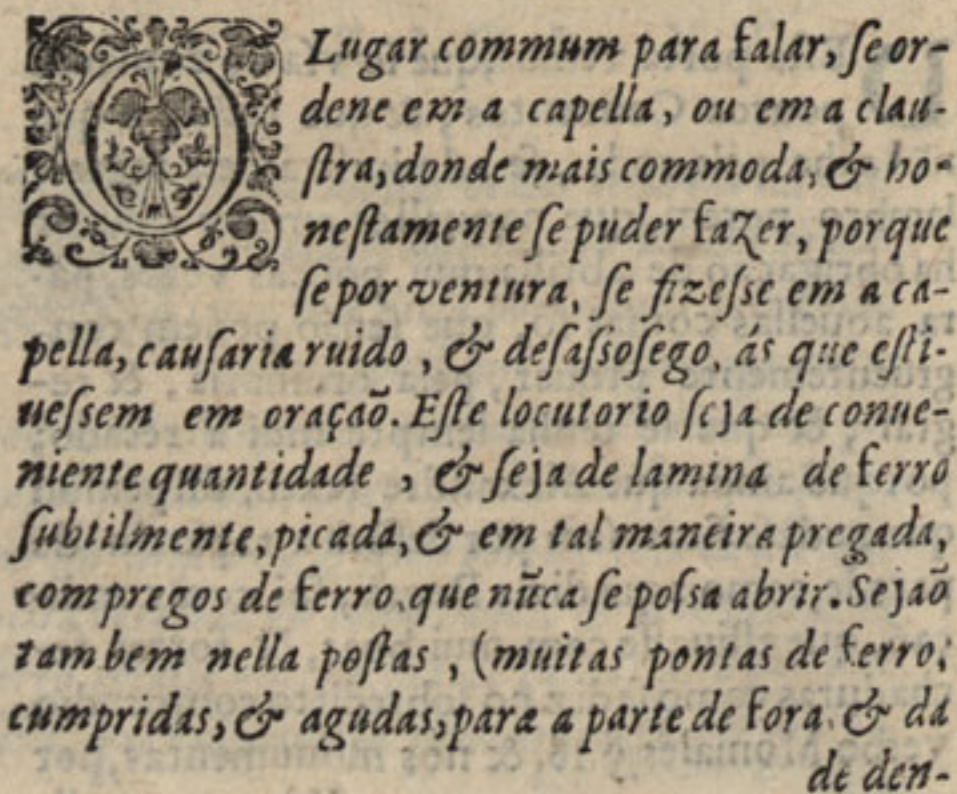 O Lugar commum para falar, ſe or-
dene em a capella, ou em a clau-
ſtra, donde mais commoda, & ho-
neſtamente ſe puder fazer, porque
ſe por ventura, ſe fizeſse em a ca-
pella, cauſaria ruido, & deſaſsoſego, ás que eſti-
ueſsem em oraçaõ. Eſte locutorio ſeja de conue-
niente quantidade, & ſeja de lamina de ferro
ſubtilmente, picada, & em tal maneira pregada,
com pregos de ferro, que nũca ſe poſsa abrir. Sejaõ
tambem nella poſtas, (muitas pontas de ferro,
cumpridas, & agudas, para a parte de fora, & da
de den-